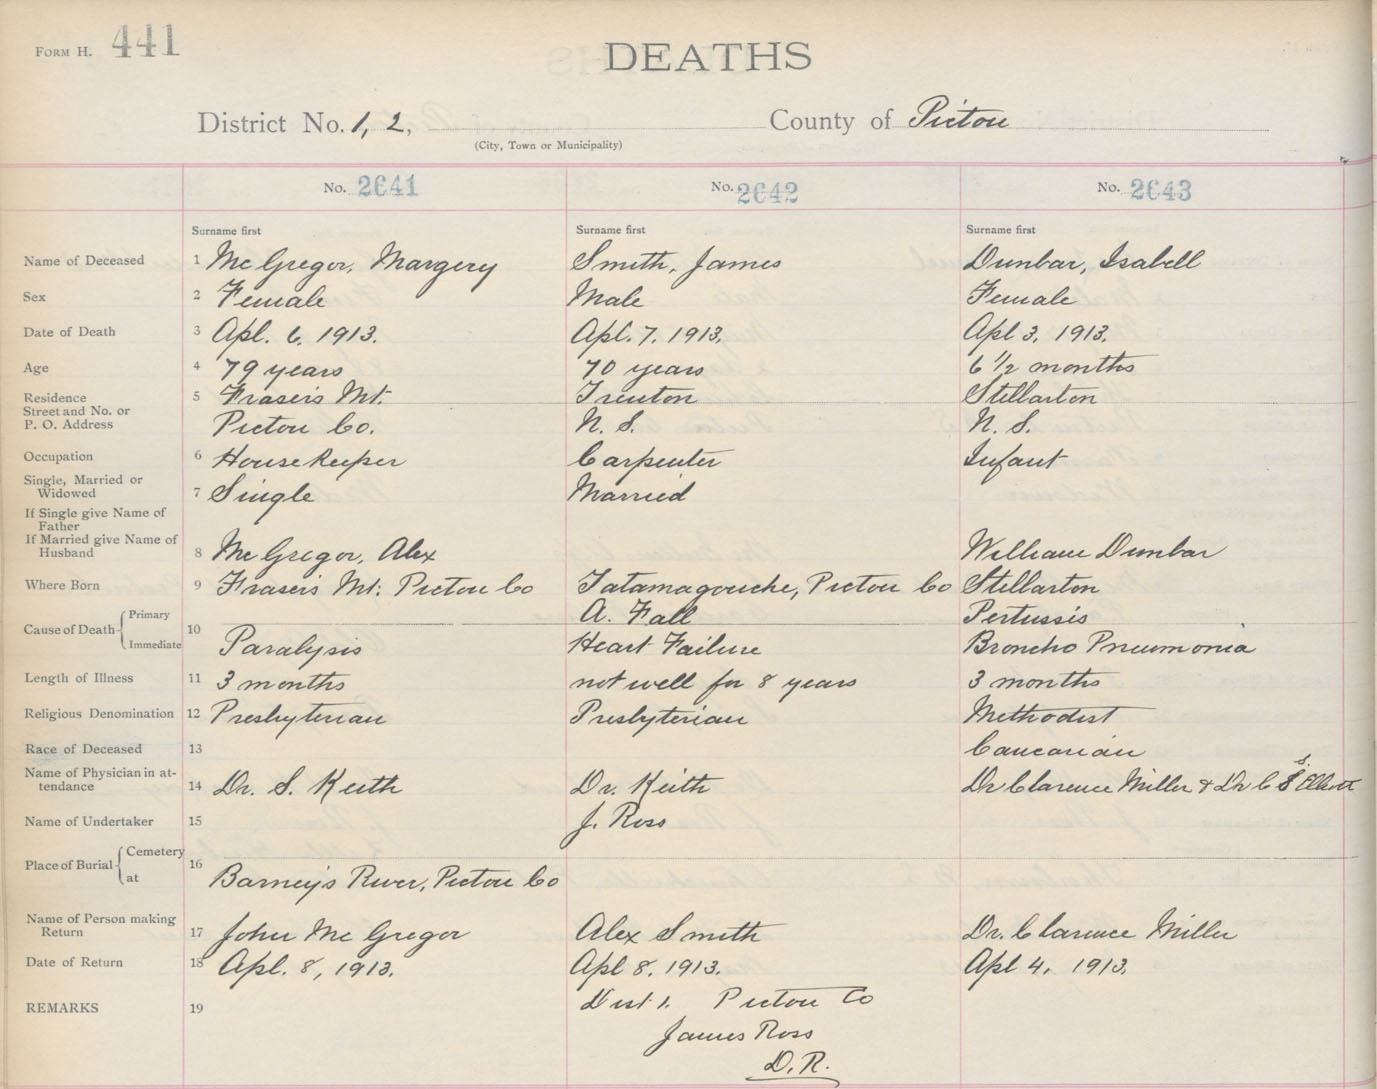 FORM H. 441
DEATHS
District No. 1, 2, County of Pictou
(City, Town or Municipality)
No. 2641 No. 2642 No. 2643
Surname first Surname first Surname first
Name of Deceased 1 McGregor, Margery Smith, James Dunbar, Isabell
Sex 2 Female Male Female
Date of Death 3 Apl. 6, 1913. Apl. 7, 1913. Apl 3, 1913.
Age 4 79 years 70 years 6 1/2 months
Residence 5 Frasers Mt. Trenton Stellarton
Street and No. or
P. O. Address Pictou Co. N. S. N. S.
Occupation 6 Housekeeper Carpenter Infant
Single, Married or
Widowed 7 Single Married
If Single give Name of
Father
If Married give Name of
Husband 8 McGregor, Alex William Dunbar
Where Born 9 Frasers Mt. Pictou Co Tatamagouche, Pictou Co Stellarton
Cause of Death Primary 10 A. Fall Pertussis
Immediate Paralysis Heart Failure Broncho Pneumonia
Length of Illness 11 3 months not well for 8 years 3 months
Religious Denomination 12 Presbyterian Presbyterian Methodist
Race of Deceased 13 Caucasian
Name of Physician in at-
tendance 14 Dr. S. Keith Dr. Keith Dr Clarence Miller & Dr C S Elliott
Name of Undertaker 15 J. Ross
Place of Burial Cemetery 16
at Barney's River, Pictou Co
Name of Person making
Return 17 John McGregor Alex Smith Dr. Clarence Miller
Date of Return 18 Apl. 8, 1913. Apl 8, 1913. Apl 4, 1913.
REMARKS 19 Dist 1. Pictou Co
James Ross
D.R.